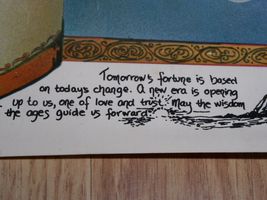 Tomorrow's fortune is based
on todays change. A new era is opening
up to us, one of love and trust. May the wisdom
the ages guide us forward.